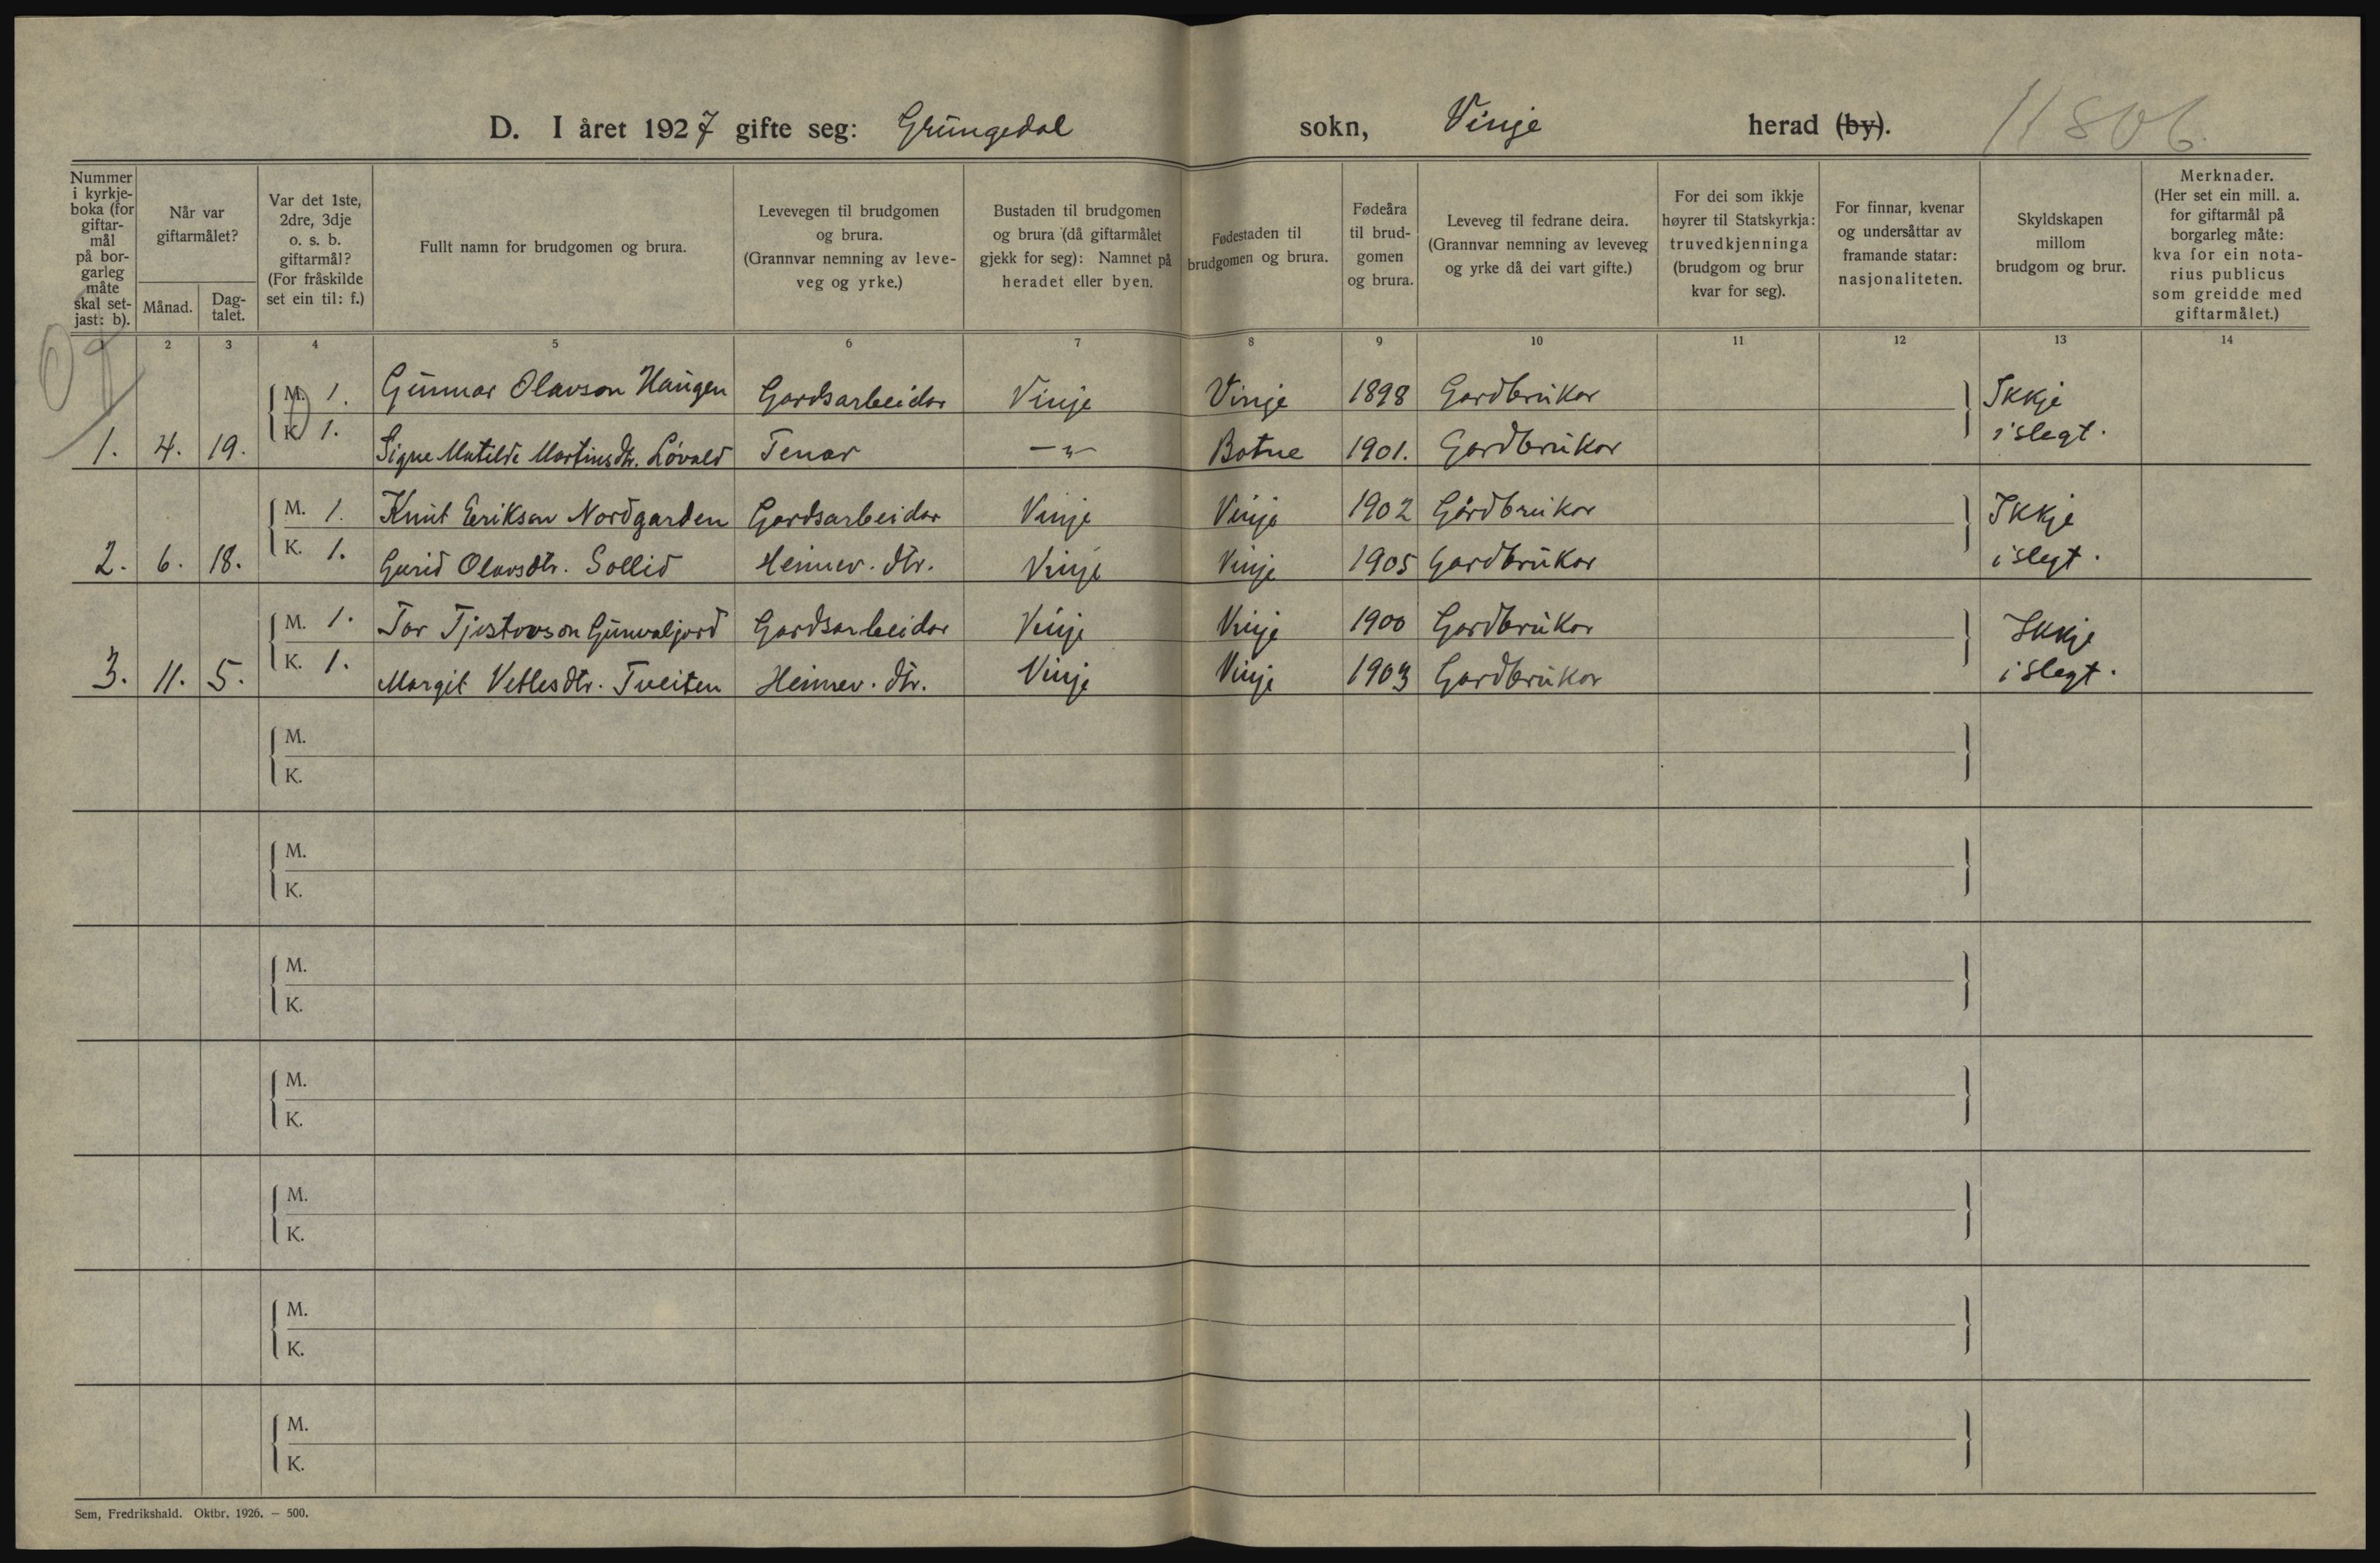 D. I året 1927 gifte seg: Grungedal sokn, Vinje herad (by). 11806
Nummer i kyrkjeboka (for giftarmål på borgarleg måte skal setjast: b).
Når var giftarmålet?
Månad.
Dagtalet.
Var det 1ste, 2dre, 3dje o. s. b. giftarmål? (For fråskilde set ein til: f.)
Fullt namn for brudgomen og brura.
Levevegen til brudgomen og brura. (Grannvar nemning av leveveg og yrke.)
Bustaden til brudgomen og brura (då giftarmålet gjekk for seg): Namnet på heradet eller byen.
Fødestaden til brudgomen og brura.
Fødeåra til brudgomen og brura.
Leveveg til fedrane deira. (Grannvar nemning av leveveg og yrke då dei vart gifte.)
For dei som ikkje høyrer til Statskyrkja: truvedkjenninga (brudgom og brur kvar for seg).
For finnar, kvenar og undersåttar av framande statar: nasjonaliteten.
Skyldskapen millom brudgom og brur.
Merknader. (Her set ein mill. a. for giftarmål på borgarleg måte: kva for ein notarius publicus som greidde med giftarmålet.)
2 3 4 5 6 7 8 9 10 11 12 13 14
M. 1. Gunnar Olavson Haugen Gardsarbeidar Vinje Vinje 1898 Gardbrukar Ikkje
1. 4. 19. K. 1. Signe Matilde Martinsdtr. Løvald Tenar —"— Botne 1901. Gardbrukar i slegt.
M. 1. Knut Eirikson Nordgarden Gardsarbeidar Vinje Vinje 1902 Gardbrukar Ikkje
2. 6. 18. K. 1. Gurid Olavsdtr. Sollid Heimev. dtr. Vinje Vinje 1905 Gardbrukar i slegt.
M. 1. Tor Tjostovson Gunvaljord Gardsarbeidar Vinje Vinje 1900 Gardbrukar Ikkje
3. 11. 5. K. 1. Margit Vetlesdtr. Tveiten Heimev. dtr. Vinje Vinje 1903 Gardbrukar i slegt.
M.
K.
M.
K.
M.
K.
M.
K.
M.
K.
M.
K.
M.
K.
Sem, Fredrikshald. Oktbr. 1926. — 500.